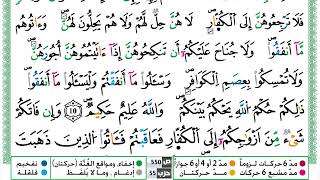 فَلَا تَرْجِعُوهُنَّ إِلَى ٱلْكُفَّارِ ۖ لَا هُنَّ حِلٌّ لَّهُمْ وَلَا هُمْ يَحِلُّونَ لَهُنَّ ۖ وَءَاتُوهُم
مَّآ أَنفَقُوا۟ ۚ وَلَا جُنَاحَ عَلَيْكُمْ أَن تَنكِحُوهُنَّ إِذَآ ءَاتَيْتُمُوهُنَّ أُجُورَهُنَّ ۚ
وَلَا تُمْسِكُوا۟ بِعِصَمِ ٱلْكَوَافِرِ وَسْـَٔلُوا۟ مَآ أَنفَقْتُمْ وَلْيَسْـَٔلُوا۟ مَآ أَنفَقُوا۟ ۚ
ذَٰلِكُمْ حُكْمُ ٱللَّهِ ۖ يَحْكُمُ بَيْنَكُمْ ۚ وَٱللَّهُ عَلِيمٌ حَكِيمٌ ١٠ وَإِن فَاتَكُمْ
شَىْءٌ مِّنْ أَزْوَٰجِكُمْ إِلَى ٱلْكُفَّارِ فَعَاقَبْتُمْ فَـَٔاتُوا۟ ٱلَّذِينَ ذَهَبَتْ
مدّ ٦ حركات لزوماً مدّ ٢ أو ٤ أو ٦ جوازاً ص 550 إخفاء، ومواقع الغُنَّة (حركتان) تفخيم
مدّ مشبع ٦ حركات مدّ حركتان حزب 55 إدغام، وما لا يُلفظ قلقلة